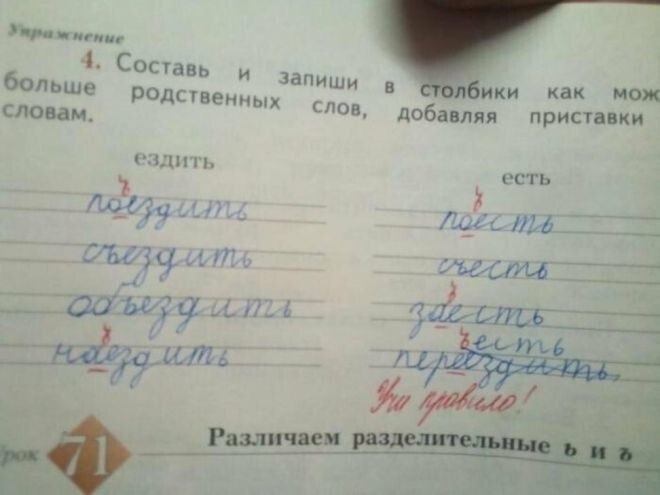 Упражнение
4. Составь и запиши в столбики как мож
больше родственных слов, добавляя приставки
словам.
ездить есть
ъ ъ
поездить поесть
съездить съесть
объездить ъ
заесть
ъ ъесть
наездить переездить,
Учи правило!
Урок 71 Различаем разделительные ь и ъ